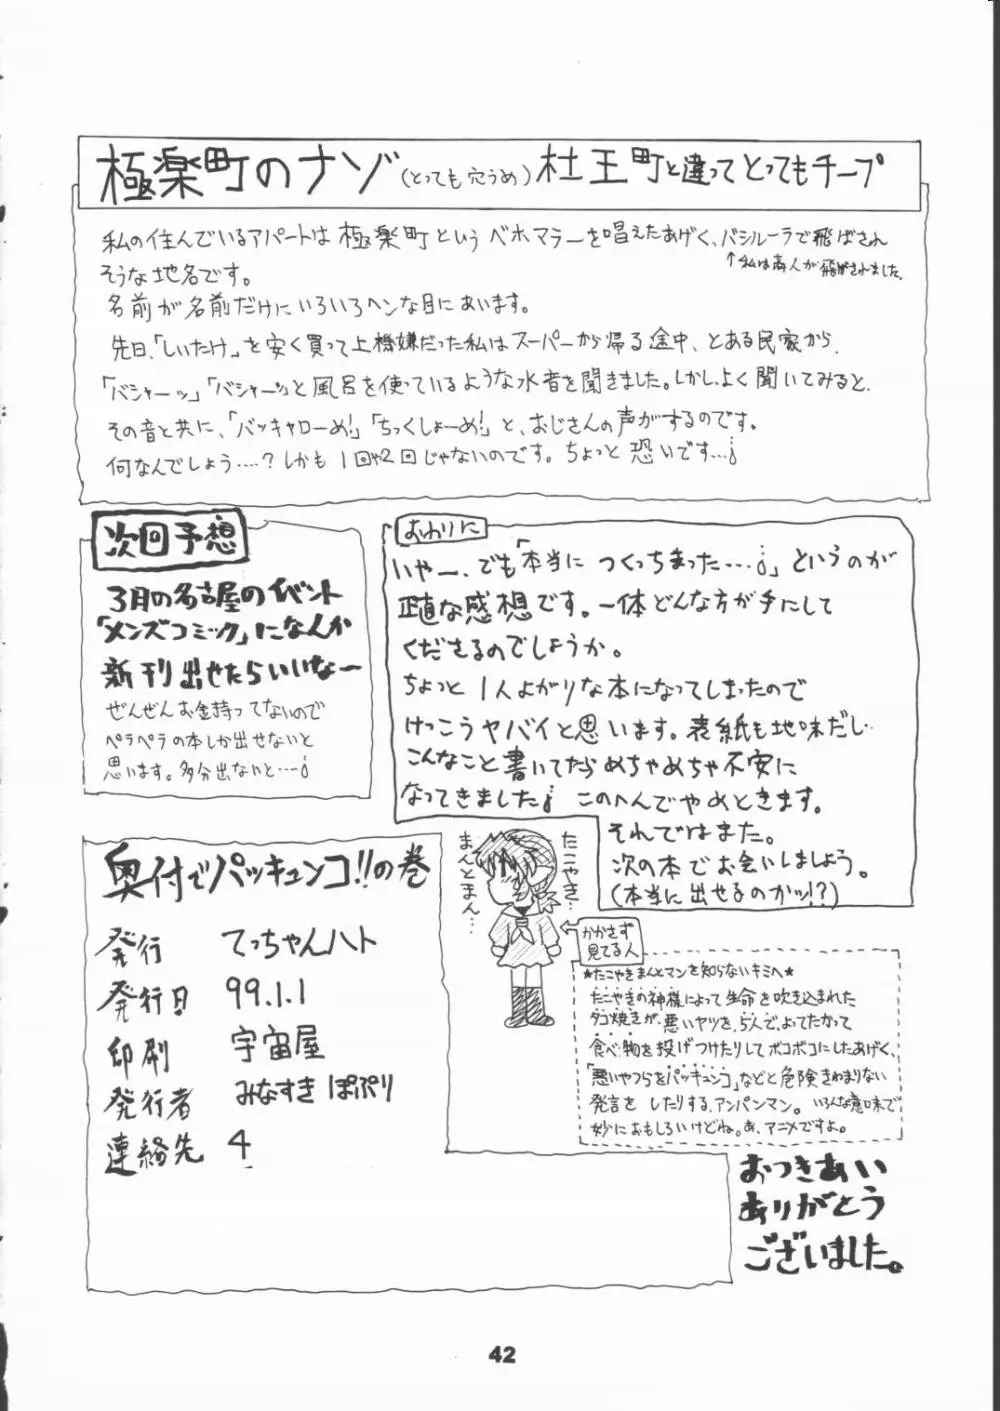 極楽町のナゾ(とっても穴うめ)杜王町と違ってとってもチープ
私の住んでいるアパートは極楽町というベホマラーを唱えたあげく、バシルーラで飛ばされ
そうな地名です。
↑私は商人が飛ばされました。
名前が名前だけにいろいろヘンな目にあいます。
先日、「しいたけ」を安く買って上機嫌だった私はスーパーから帰る途中、とある民家から、
「バシャーッ」「バシャーッ」と風呂を使っているような水音を聞きました。しかし、よく聞いてみると、
その音と共に、「バッキャローめ!」「ちっくしょーめ!」と、おじさんの声がするのです。
何なんでしょう‥‥?しかも1回や2回じゃないのです。ちょっと恐いです…
次回予想
3月の名古屋のイベント
「メンズコミック」になんか
新刊出せたらいいなー
ぜんぜんお金持ってないので
ペラペラの本しか出せないと
思います。多分出ないと…
おわりに
いやー、でも「本当につくっちまった…」というのが
正直な感想です。一体どんな方が手にして
くださるのでしょうか。
ちょっと1人よがりな本になってしまったので
けっこうヤバイと思います。表紙も地味だし…
こんなこと書いてたらめちゃめちゃ不安に
なってきました このへんでやめときます。
それではまた。
次の本でお会いしましょう。
(本当に出せるのかッ!?)
奥付でパッキュンコ!!の巻
発行 てっちゃんハト
発行日 99.1.1
印刷 宇宙屋
発行者 みなすき ぽぷり
連絡先 4
たこやき…
まんとまん…
かかさず
見てる人
★たこやきまんとマンを知らないキミへ★
たこやきの神様によって生命を吹き込まれた
タコ焼きが、悪いヤツを、5人で、よってたかって
食べ物を投げつけたりしてボコボコにしたあげく、
「悪いやつらをパッキュンコ」などと危険きわまりない
発言をしたりする、アンパンマン。いろんな意味で
妙におもしろいけどね。あ、アニメですよ。
おつきあい
ありがとう
ございました。
42